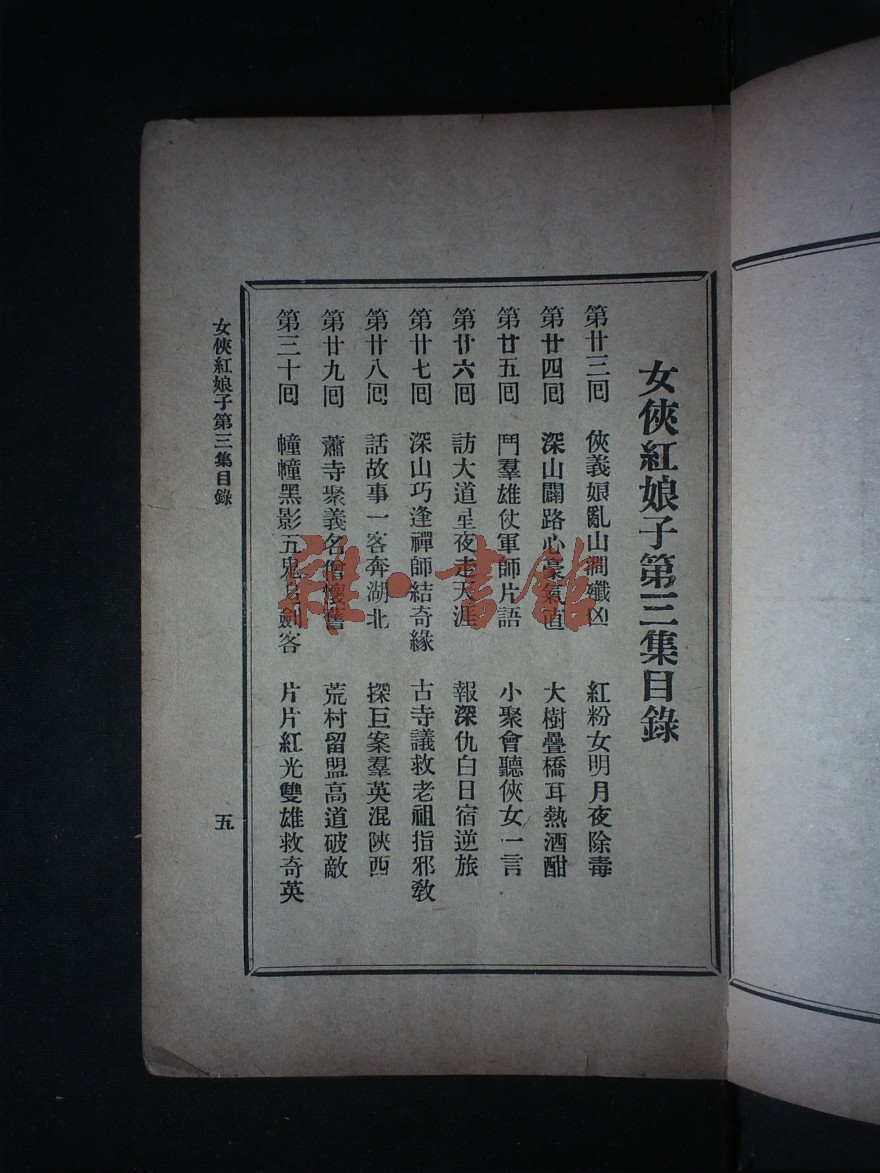 女俠紅娘子第三集目錄
第廿三囘 俠義娘亂山澗殲凶 紅粉女明月夜除毒
第廿四囘 深山闢路心豪氣直 大樹疊橋耳熱酒酣
第廿五囘 鬥羣雄仗軍師片語 小聚會聽俠女一言
第廿六囘 訪大道星夜走天涯 報深仇白日宿逆旅
第廿七囘 深山巧逢禪師結奇緣 古寺議救老祖指邪敎
第廿八囘 話故事一客奔湖北 探巨案羣英混陝西
第廿九囘 蕭寺聚義名僧懷舊 荒村留盟高道破敵
第三十囘 幢幢黑影五鬼 劍客 片片紅光雙雄救奇英
女俠紅娘子第三集目錄
五
雜·書館